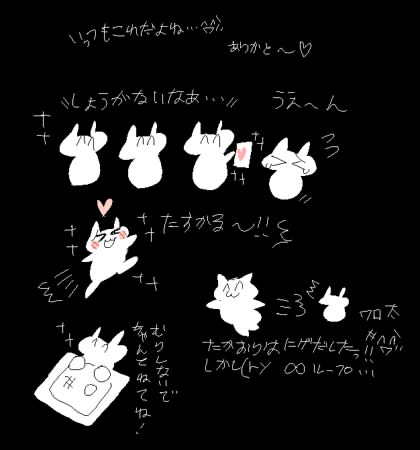 いつもこれだよね…
ありがと〜♡
しょうがないなぁ…
うえ〜ん
たすかる〜!!
クロ太
たかおりはにげだしたっ!!
しかし ∞ループ…
むりしないで
ちゃんとねてね!